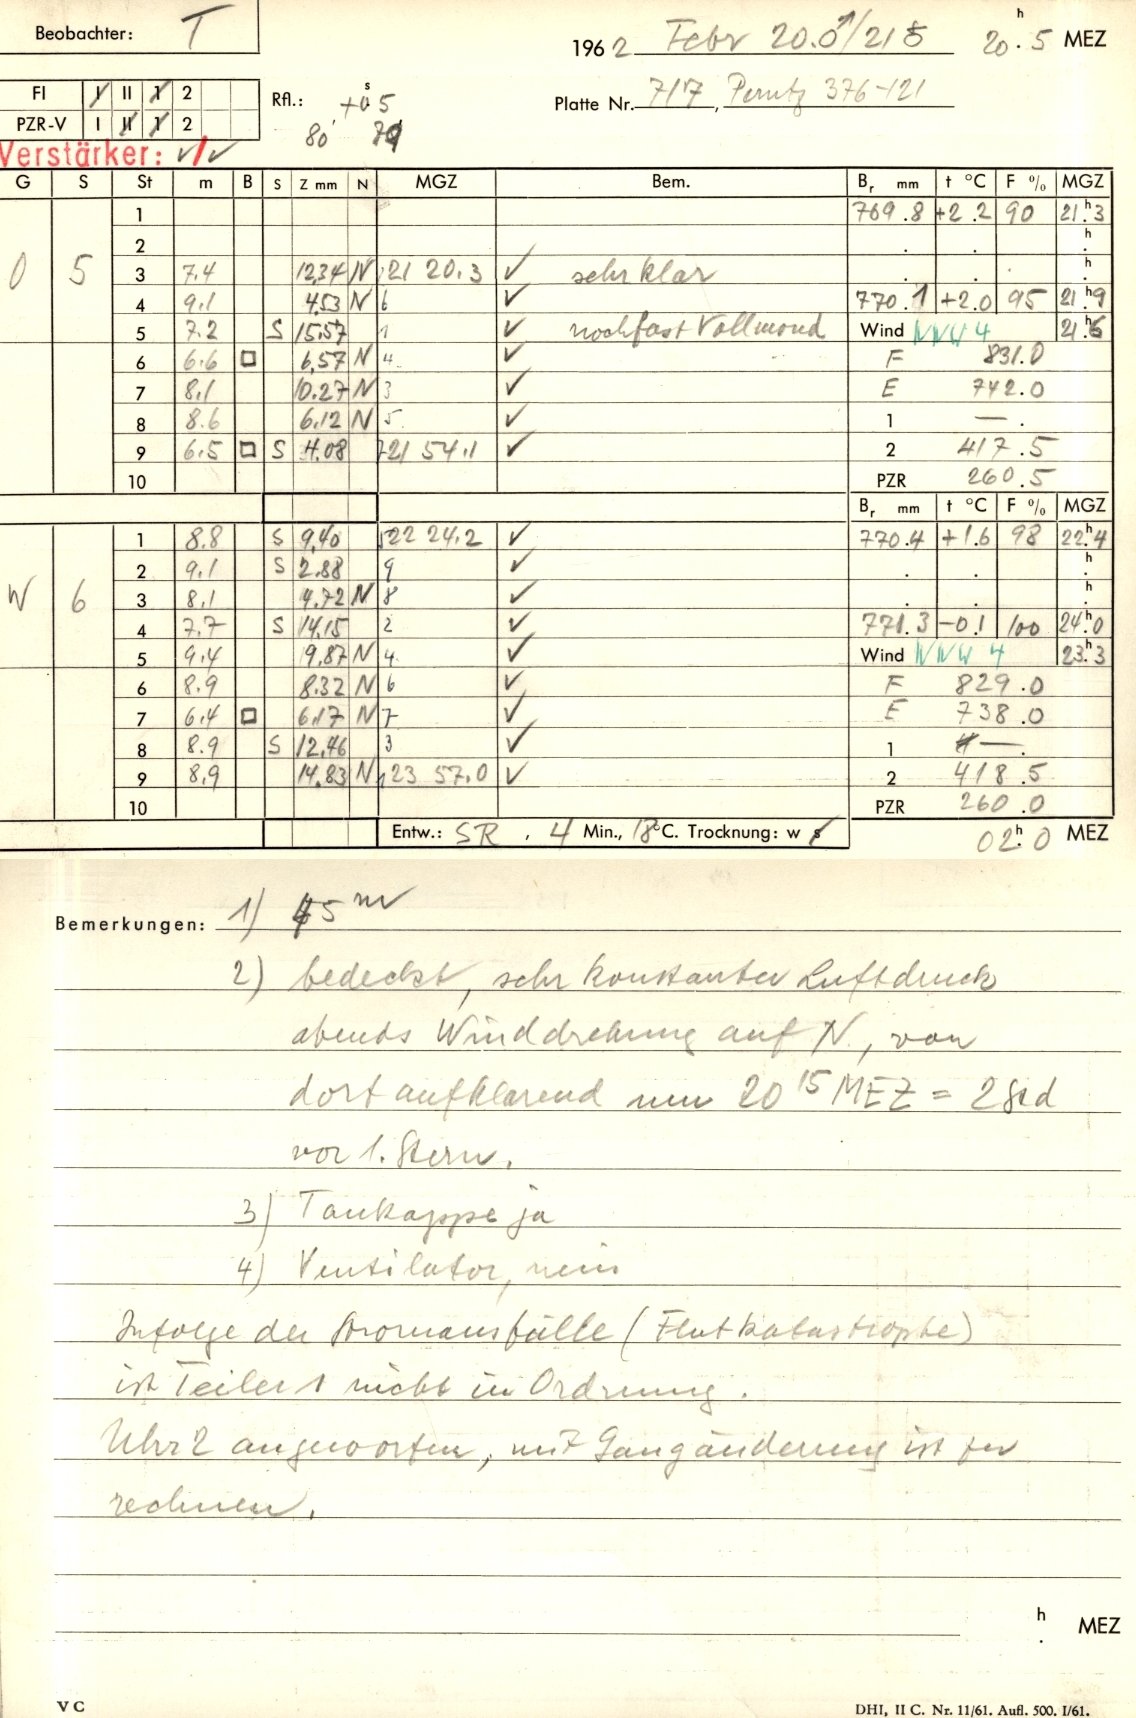 Beobachter: T
1962 Febr 20.♂/21☿ 20h.5 MEZ
FI I II 1 2
PZR-V I II 1 2
Rfl.: +0s5
80 70
Platte Nr. 717, Perutz 376-121
Verstärker: ✓/✓
G S St m B S Z mm N MGZ Bem. Br mm t °C F % MGZ
1 769.8 +2.2 90 21h3
2 . . h.
O 5 3 7.4 12,34 N 21 20.3 ✓ sehr klar . . . h.
4 9.1 4,53 N 6 ✓ 770.1 +2.0 95 21h9
5 7.2 S 15,57 1 ✓ noch fast Vollmond Wind NNW 4 21h.6
6 6.6 □ 6,57 N 4 ✓ F 831.0
7 8.1 10.27 N 3 ✓ E 742.0
8 8.6 6.12 N 5 ✓ 1 — .
9 6.5 □ S 4.08 21 54.1 ✓ 2 417.5
10 PZR 260.5
Br mm t °C F % MGZ
1 8.8 S 9,40 22 24.2 ✓ 770.4 +1.6 98 22h.4
2 9.1 S 2.88 9 ✓ . . h.
W 6 3 8.1 4.72 N 8 ✓ . . h.
4 7.7 S 14,15 2 ✓ 771.3 -0.1 100 24h.0
5 9.4 9,87 N 4 ✓ Wind NNW 4 23h.3
6 8.9 8.32 N 6 ✓ F 829.0
7 6.4 □ 6.17 N 7 ✓ E 738.0
8 8.9 S 12,46 3 ✓ 1 — .
9 8.9 14.83 N 23 57.0 ✓ 2 418.5
10 PZR 260.0
Entw.: SR . 4 Min., 18°C. Trocknung: w k 02h.0 MEZ
Bemerkungen: 1) 5 m
2) bedeckt, sehr konstanter Luftdruck
abends Winddrehung auf N., von
dort aufklarend um 20 15 MEZ = 2 Std
vor 1. Stern.
3) Taukappe ja
4) Ventilator, nein
Infolge der Stromausfälle (Flutkatastrophe)
ist Teiler 1 nicht in Ordnung.
Uhr 2 angeworfen, mit Gangänderung ist zu
rechnen.
h. MEZ
V C
DHI, II C. Nr. 11/61. Aufl. 500. I/61.